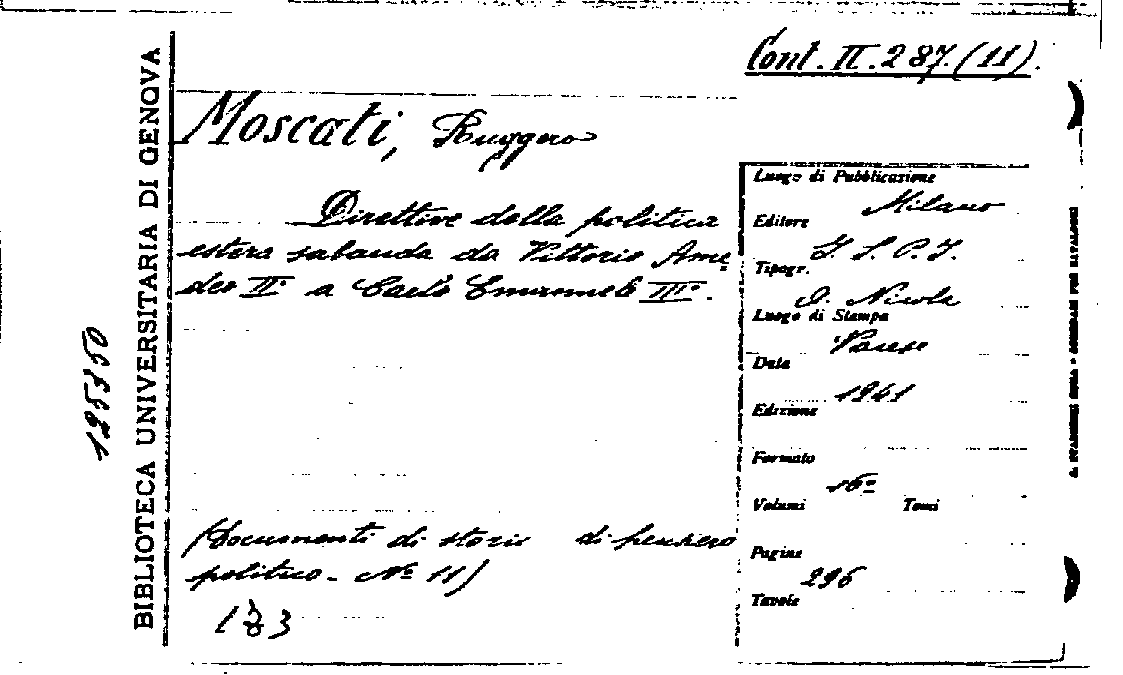 Cont. II. 287. (11).
Moscati, Ruggero
Direttive della politica
estera sabauda da Vittorio Ame
deo II° a Carlo Emanuele III°.
(Documenti di storia di pensiero
politico - N° 11)
BIBLIOTECA UNIVERSITARIA DI GENOVA
195350
Luogo di Pubblicazione
Milano
Editore
I. S. P. I.
Tipogr.
O. Nicola
Luogo di Stampa
Varese
Data
1941
Edizione
Formato
16°
Volumi Tomi
Pagine
296
Tavole